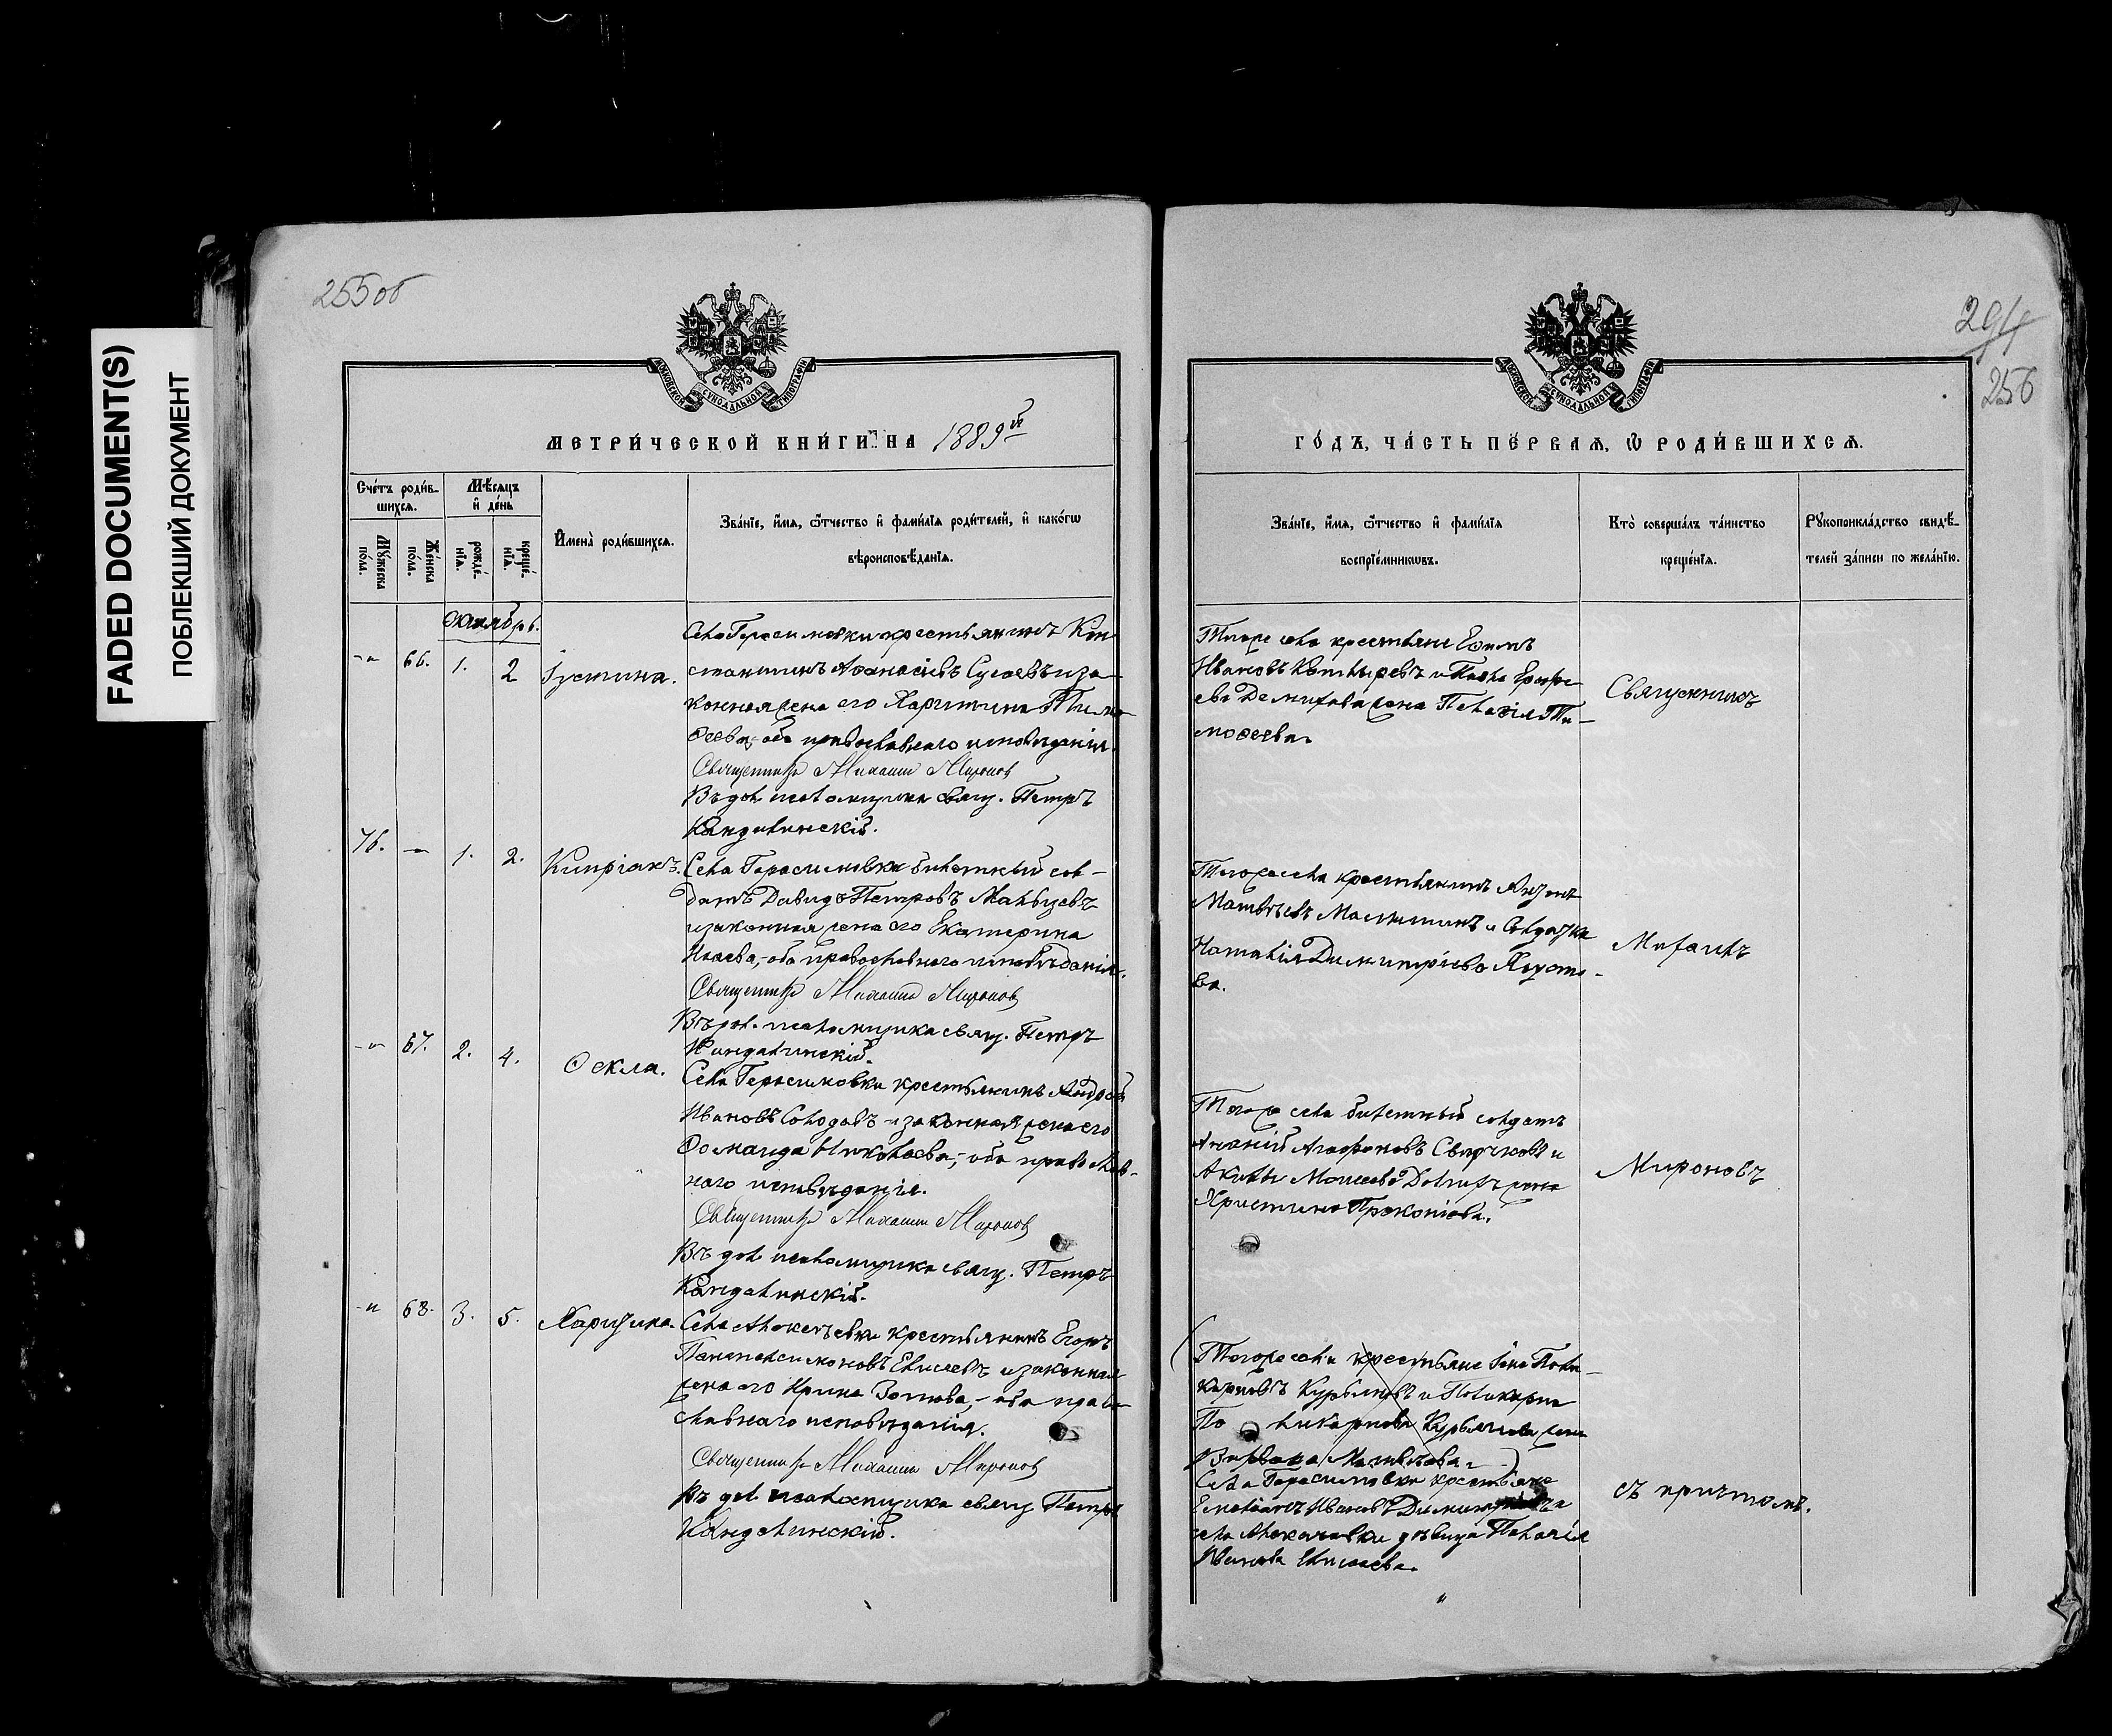 FADED DOCUMENT(S)
ПОБЛЕКШИЙ ДОКУМЕНТ
255об
МОСКОВСКОЙ СѴНОДАЛЬНОЙ ТИПОГРАФІИ
МЕТРИ́ЧЕСКОЙ КНИ́ГИ НА 1889й
Сче́тъ роди́в-
шихсѧ.
Мꙋ́жеска
по́ла.
Же́нска
по́ла.
Мѣ́сѧцъ
и҆ де́нь
рожде́-
нїѧ.
креще́-
нїѧ.
И҆мена̀ роди́вшихсѧ.
Зва́нїе, и҆́мѧ, ѻ҆́тчество и҆ фами́лїѧ роди́телей, и҆ како́гѡ
вѣроисповѣ́данїѧ.
Октябрь.
-"- 66. 1. 2 Іустина.
Села Герасимовки крестьянинъ Кон
стантинъ Аѳанасіевъ Сусаевъ и за-
конная жена его Харитина Тимо
ѳеева, оба православнаго исповѣданія.
Священникъ Михаилъ Мироновъ
Въ дол. псаломщика свящ. Петръ
Кандалинскій.
76. - 1. 2. Кипріанъ.
Села Герасимовки билетный сол-
датъ Давидъ Петровъ Мальцевъ
и законная жена его Екатерина
Исаева, - оба православнаго исповѣданія.
Священникъ Михаилъ Мироновъ
Въ дол. псаломщика свящ. Петръ
Кандалинскій.
-"- 67. 2. 4. Ѳекла.
Села Герасимовки крестьянинъ Андрей
Ивановъ Солодовъ и законная жена его
Домнида Николаева, - оба православ-
наго исповѣданія.
Священникъ Михаилъ Мироновъ
Въ дол. псаломщика свящ. Петръ
Кандалинскій.
-"- 68. 3. 5. Харитина.
Села Алексѣевки крестьянинъ Егоръ
Пантелеимоновъ Елисеевъ и законная
жена его Ирина Зотова, - оба право-
славнаго исповѣданія.
Священникъ Михаилъ Мироновъ
Въ дол псаломщика свящ Петръ
Кандалинскій.
294
256
МОСКОВСКОЙ СѴНОДАЛЬНОЙ ТИПОГРАФІИ
ГО́ДЪ, ЧА́СТЬ ПЕ́РВАѦ, Ѡ҆ РОДИ́ВШИХСѦ.
Зва́нїе, и҆́мѧ, ѻ҆́тчество и҆ фами́лїѧ
воспрїе́мникѡвъ.
Кто̀ соверша́лъ та́инство
креще́нїѧ.
Рꙋкоприкла́дство свидѣ́-
телей за́писи по жела́нїю.
Того же села крестьяне Ефимъ
Ивановъ и Павла
жена Пелагія Ти-
моѳеева.
Того же села крестьянинъ
Матвѣевъ и солдатка
Наталія Димитріева
ва.
Михаилъ
Того же села билетный солдатъ
Ананій Агафоновъ и
Акилы Моисеева жена
Христина Прокопіева.
Мироновъ
Того же села крестьяне
карповъ Курбановъ и Поликарпа
По ликарпова жена
Матвѣева.
Села Герасимовки крестьянинъ
Емельянъ Ивановъ
села Алексѣевки дѣвица Пелагія
Иванова Елисеева.
съ причтомъ.